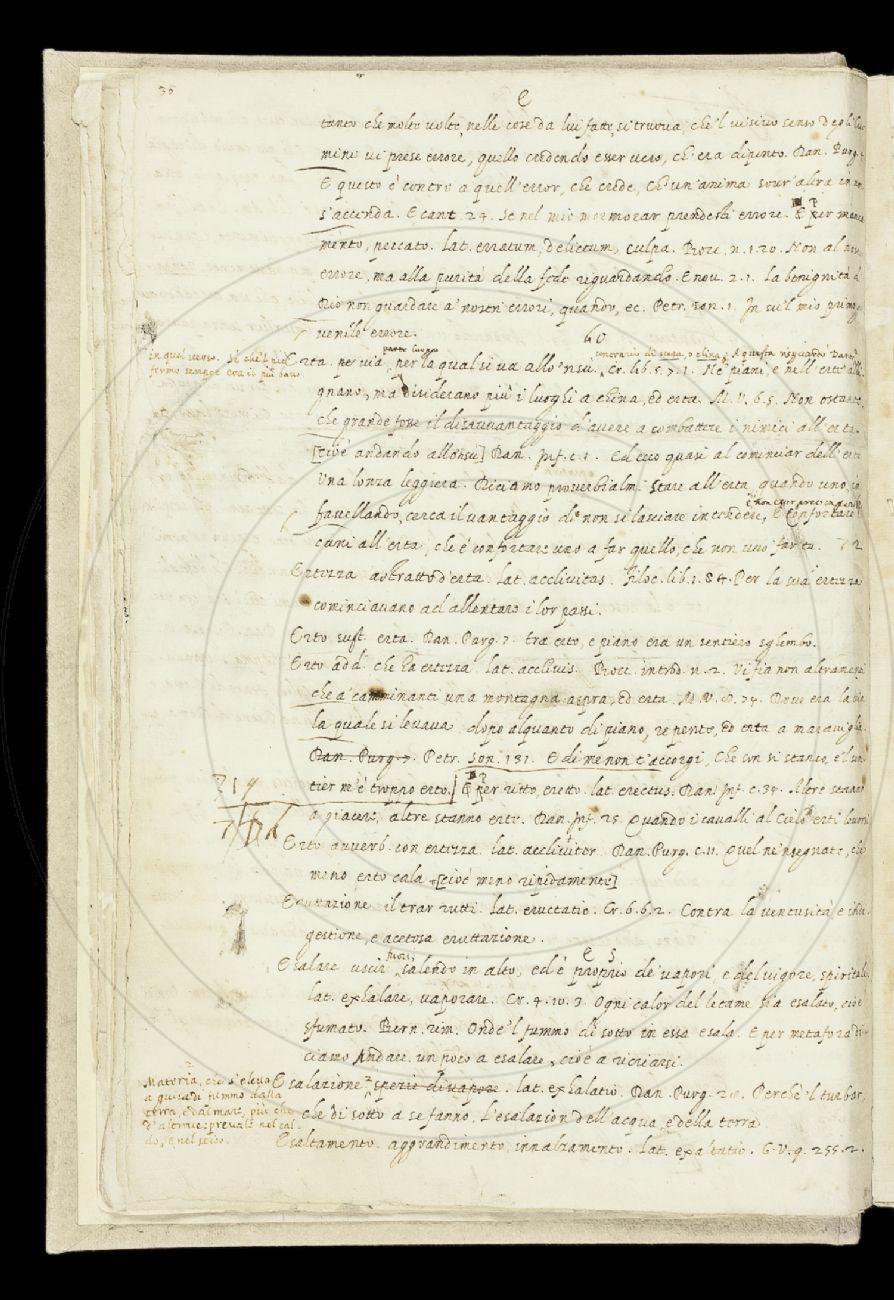 30
E
tanto che molte volte, nelle cose da lui fatte, si truova, che'l visivo senso degli huo
mini vi prese errore, quello credendo esser vero, ch'era dipinto. Dan. Purg. 4
E questo è contro a quell'error, che crede, Ch'un'anima sovr'altra in
s'accenda. E cant. 24. Se nel mio mormorar prendesti errore. E per manca
mento, peccato. lat. erratum, delictum, culpa. Bocc. n. 1. 20. Non al
errore, ma alla purità della fede riguardando. E nov. 2. 1. la benignità d
Dio non guardare a' nostri errori, quando, ec. Petr. son. 1. In su'l mio primo
venile errore.
60
parte luogo
contrario di scesa, o china. A questa riguardò Dan.
in quel verso. Sì che'l piè
fermo sempre era il più basso
Erta. per via, per la qual si va allo 'nsu. Cr. lib. 5. 7. 1. Ne' piani, e nell'erte alli
gnano, ma disiderano più i luoghi a china, ed erta. M. V. 6. 5. Non ostante,
che grande fosse il disavvantaggio d'avere a combattere i nimici all'erta.
[cioè andando allonsu] Dan. Inf. c. 1. Ed ecco quasi al cominciar dell'erta
Una lonza leggiera. Diciamo proverbialm. Stare all'erta quando uno, in
è non esser preso
favellando, cerca il vantaggio di non si lasciare intendere, E Confortare i
cani all'erta, che è confortare uno a far quello, che non vuo far tu. 72
Ertezza astratto d'erta. lat. acclivitas. Filoc. lib. 1. 84. Per la sua ertezza
cominciavano ad allentare i lor passi.
Erto sust. erta. Dan. Purg. 7. tra erto, e piano era un sentiero sghembo.
Erto add. che ha ertezza. lat. acclivis. Bocc. introd. n. 2. Vi fia non altramenti
che a' camminanti una montagna aspra, ed erta. M. V. 8. 74. Dove era la via
la quale si levava dopo alquanto di piano, repente, ed erta a maraviglia.
Dan. Purg. 7. Petr. Son. 131. E di me non t'accorgi, Che son sì stanco, e'l
tier m'è troppo erto. E per ritto, eretto. lat. erectus. Dan. Inf. c. 34. Altre stanno
a giacere, altre stanno erte. Dan. Inf. 25. Quando i cavalli al Cielo erti
Erto avverb. con ertezza. lat. accliviter. Dan. Purg. c. 11. Quel ne 'nsegnate, che
meno erto cala. [cioè meno ripidamente]
Eruttazione il trar rutti. lat. eructatio. Cr. 6. 6. 2. Contra la ventusità e indi
gestione, e acetosa eruttazione.
E S
fuori,
Esalare uscir salendo in alto, ed è proprio de' vapori, e del vigore, spiritale,
lat. exhalare, vaporare. Cr. 4. 10. 3. Ogni calor del letame sia esalato, cioè
sfumato. Bern. rim. Onde'l fummo di sotto in essa esala. E per metafora di
ciamo Andare un poco a esalare, cioè a ricriarsi.
Materia, che s'eleva
a guisa di fummo dalla
terra, e dal mare, più che
d'altrove: prevale nel cal
do, e nel secco.
Esalazione spezie di vapore. lat. exhalatio. Dan. Purg. 28. Perchè'l turbar,
che di sotto a se fanno, L'esalazion dell'acqua, e della terra
Esaltamento. aggrandimento, innalzamento. lat. exaltatio. G. V. 9. 255. 2.